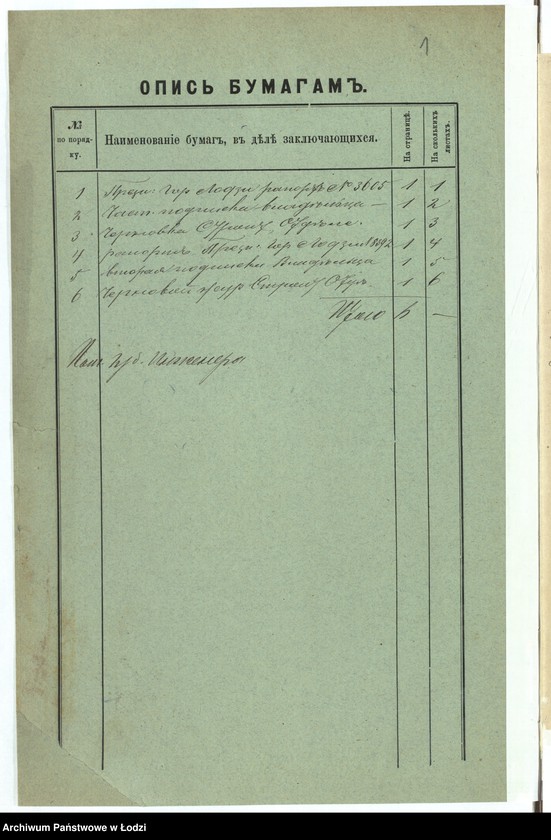 1
ОПИСЬ БУМАГАМЪ.
№
по поряд-
ку.
Наименованіе бумагъ, въ дѣлѣ заключающихся.
На страницѣ.
На сколькихъ
листахъ.
1 През: Гор Лодзи рапортъ № 3605 1 1
2 подписки владѣльца — 1 2
3 1 3
4 През: Гор Лодзи 1 4
5 вторая подписки Владѣльца 1 5
6 Черновой 1 6
Итого 6 —
Пом. Губ. Инженера
Archiwum Państwowe w Łodzi